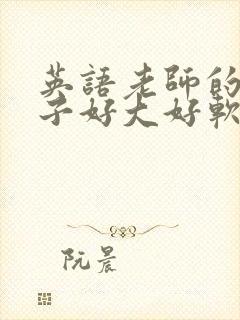 英語老師的
子好大好軟
阮晨